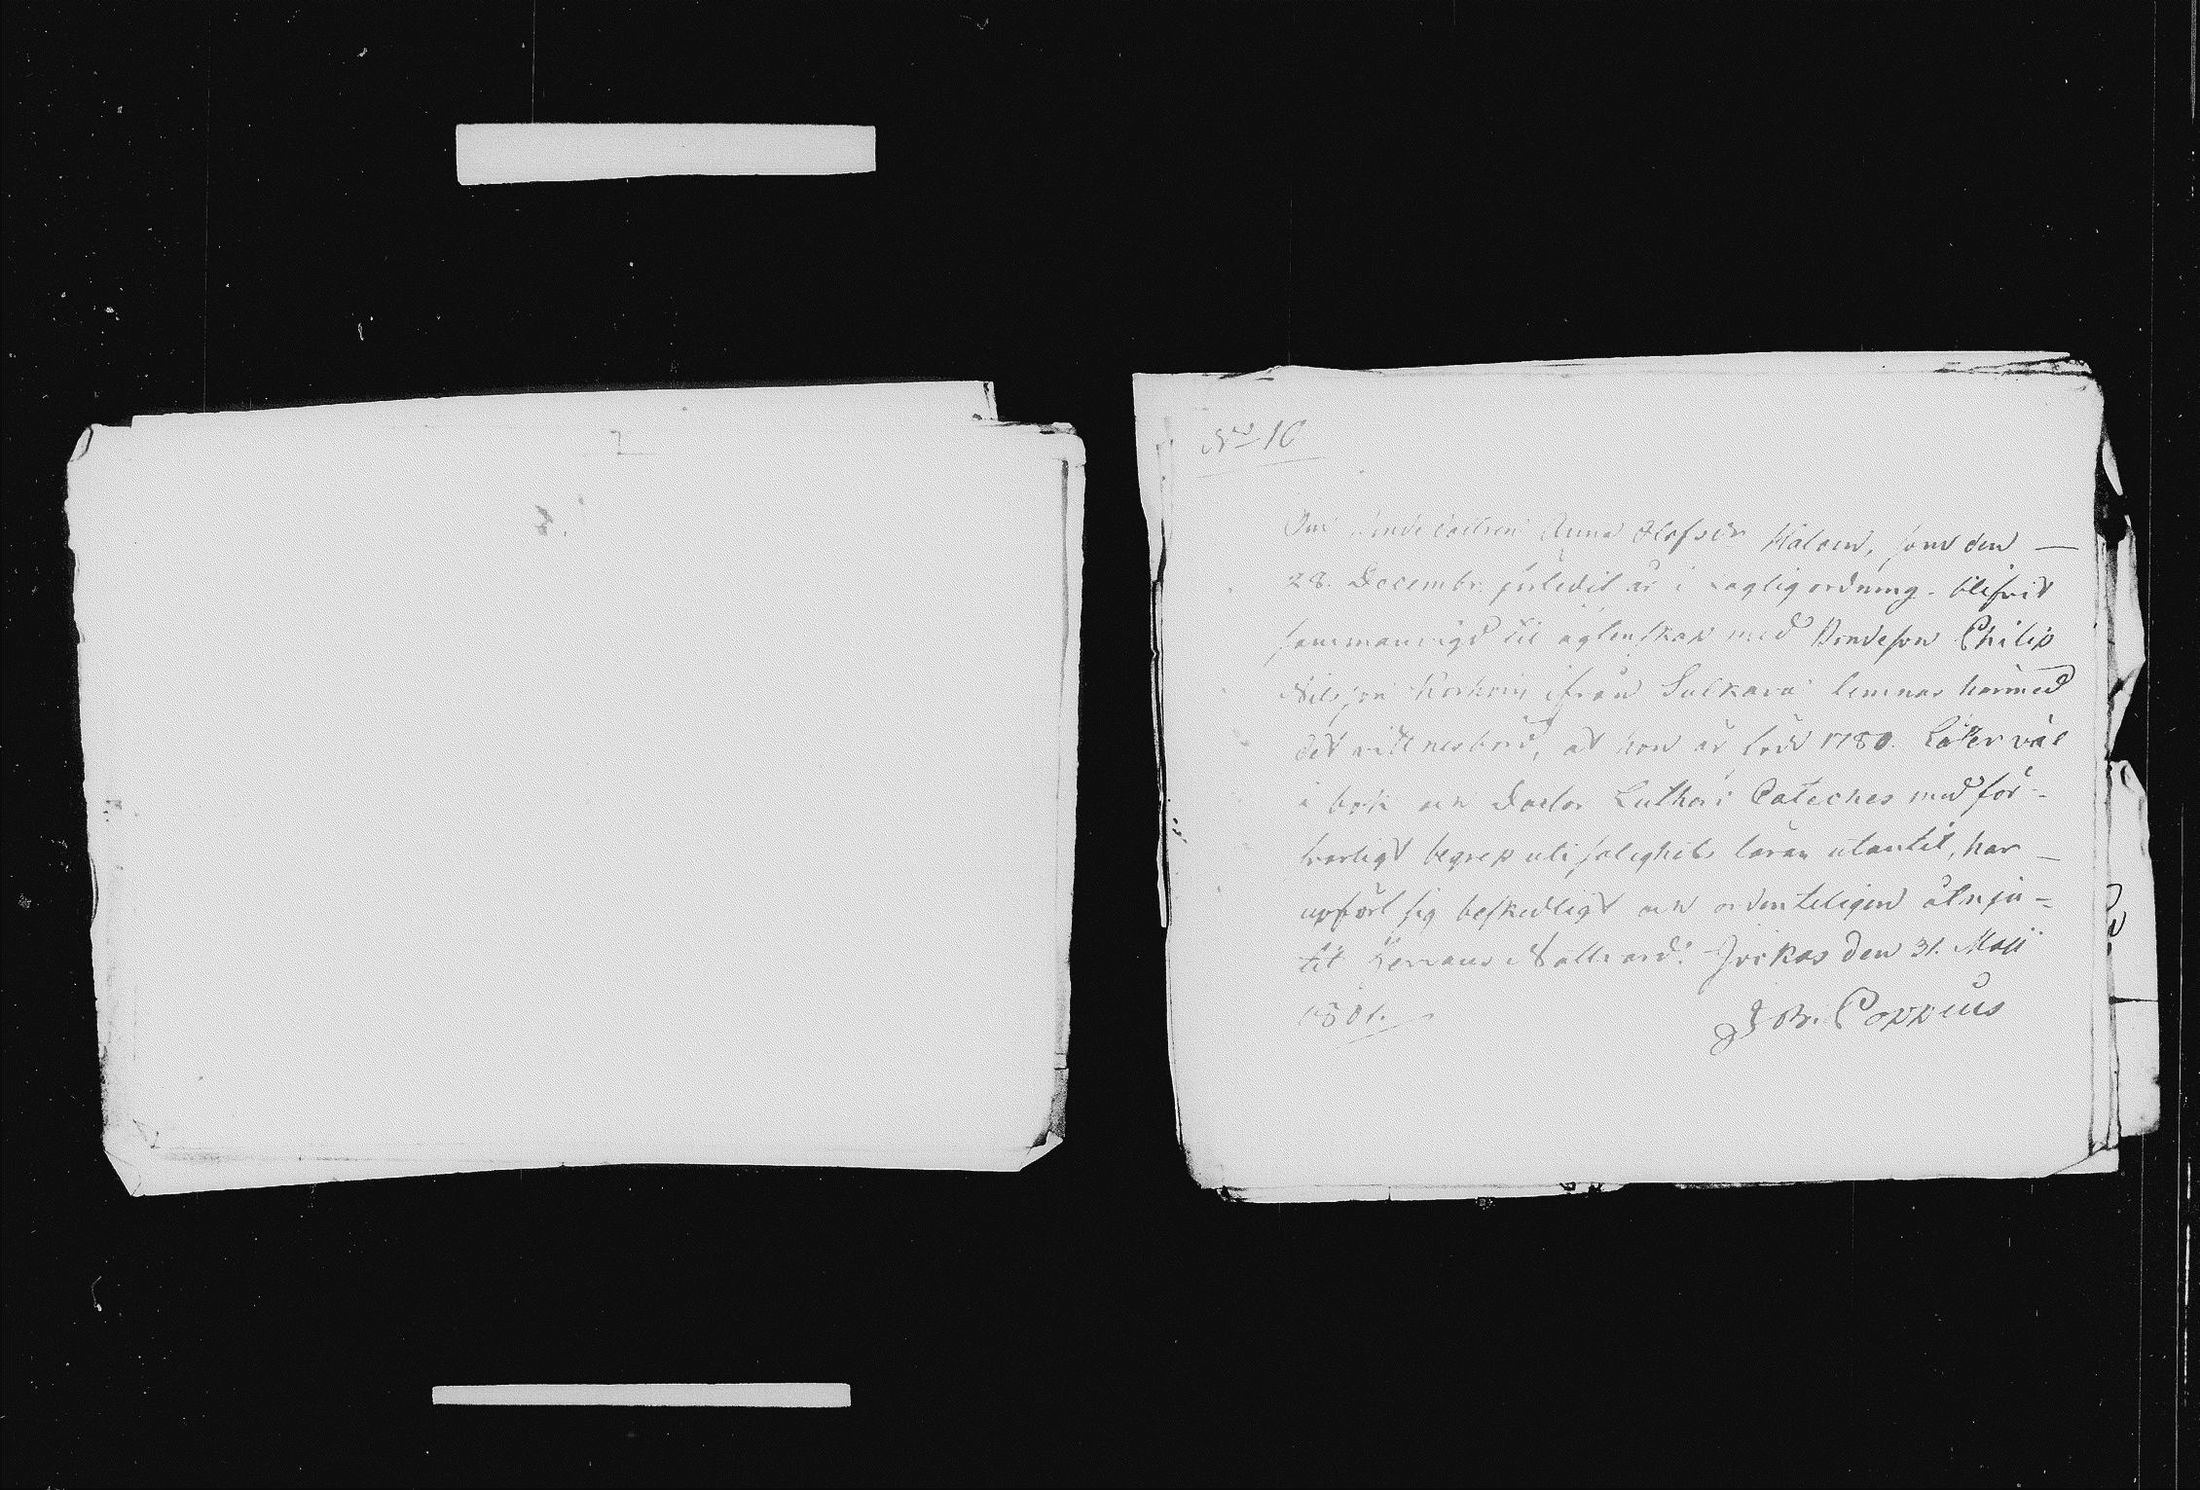 No 10
Om Bonde Dottren Anna Olofsdr Haloin, som den —
28. Decembr. förledit år i laglig ordning blifvit
sammanvigd til ägtenskap med Bondeson Philip
Nilsson ifrån Sulkava lemnas härmed
det vittnesbörd, at hon är född 1780. Läser väl
i bok och Doctor Lutheri Cateches med för-
svarligt begrep uti salighets läran utantil, har —
upfört sig beskedligt och ordenteligen åtnju=
tit Herrans Nattvard. Jockas den 31. Maii
1801.
Joh. Poppius